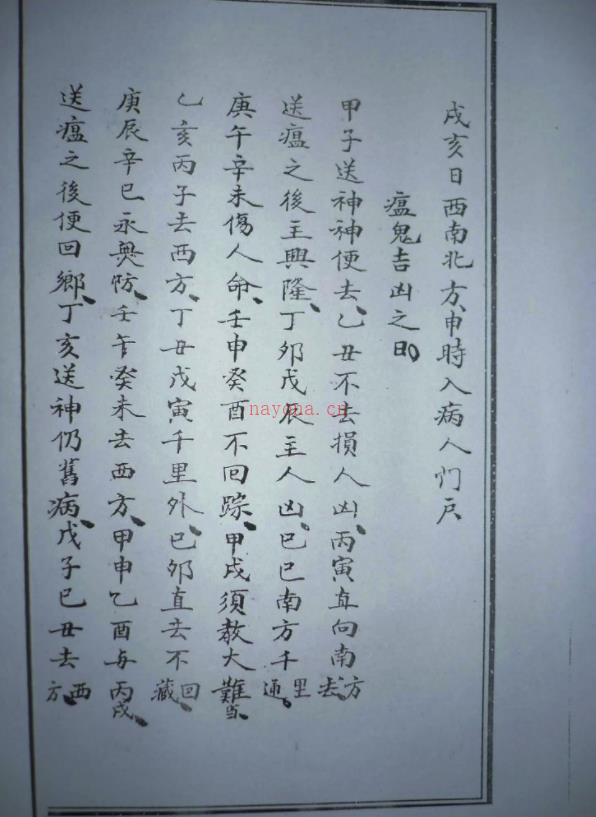 戌亥日西南北方、申時入病人門戶
瘟鬼吉凶之日
甲子送神神便去、乙丑不去損人凶、丙寅直向南方去、
送瘟之後主興隆、丁卯戊辰主人凶、巳巳南方千里通、
庚午辛未傷人命、壬申癸酉不回踪、甲戌須教大難當、
乙亥丙子去西方、丁丑戊寅千里外、巳卯直去不回藏、
庚辰辛巳永無防、壬午癸未去西方、甲申乙酉与丙戌、
送瘟之後便回鄉、丁亥送神仍舊病、戊子巳丑去西方、
nayona.cn